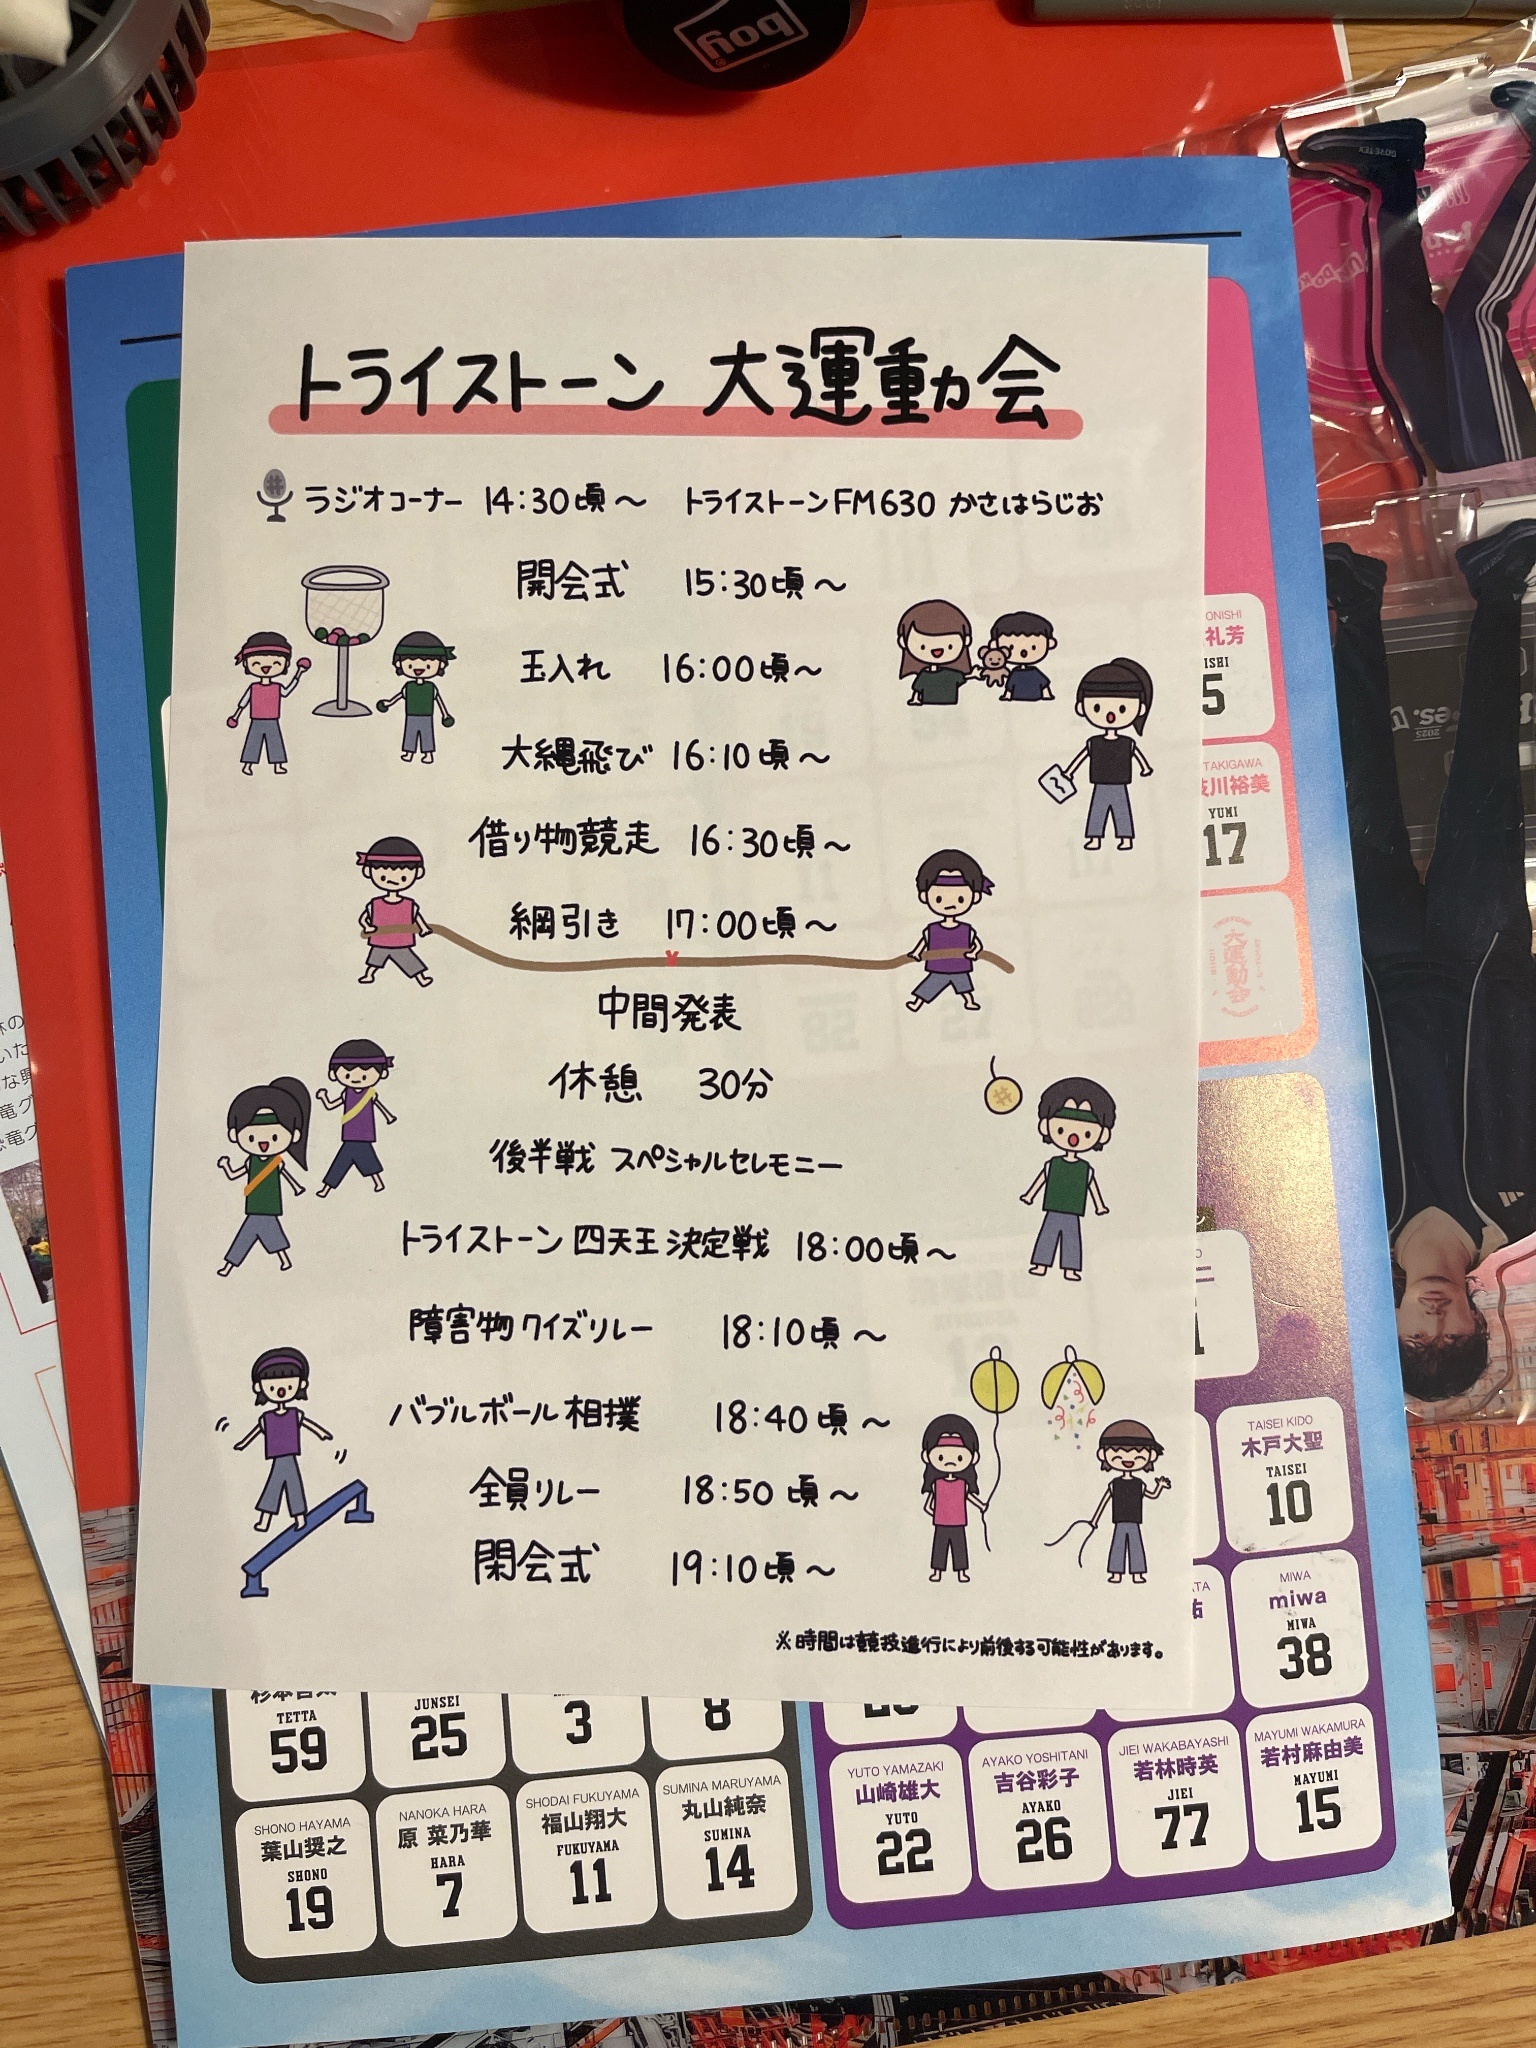 boy
トライストーン 大運動会
ラジオコーナー 14:30頃〜 トライストーンFM630 かさはらじお
開会式 15:30頃〜
玉入れ 16:00頃〜
大縄飛び 16:10頃〜
借り物競走 16:30頃〜
綱引き 17:00頃〜
中間発表
休憩 30分
後半戦 スペシャルセレモニー
トライストーン 四天王 決定戦 18:00頃〜
障害物クイズリレー 18:10頃〜
バブルボール相撲 18:40頃〜
全員リレー 18:50頃〜
閉会式 19:10頃〜
※時間は競技進行により前後する可能性があります。
ONISHI
礼芳
ISHI
5
TAKIGAWA
川裕美
YUMI
17
大運動会
TAISEI KIDO
木戸大聖
TAISEI
10
MIWA
miwa
MIWA
38
TETTA
59
JUNSEI
25
3
8
SHONO HAYAMA
葉山奨之
SHONO
19
NANOKA HARA
原 菜乃華
HARA
7
SHODAI FUKUYAMA
福山翔大
FUKUYAMA
11
SUMINA MARUYAMA
丸山純奈
SUMINA
14
YUTO YAMAZAKI
山崎雄大
YUTO
22
AYAKO YOSHITANI
吉谷彩子
AYAKO
26
JIEI WAKABAYASHI
若林時英
JIEI
77
MAYUMI WAKAMURA
若村麻由美
MAYUMI
15